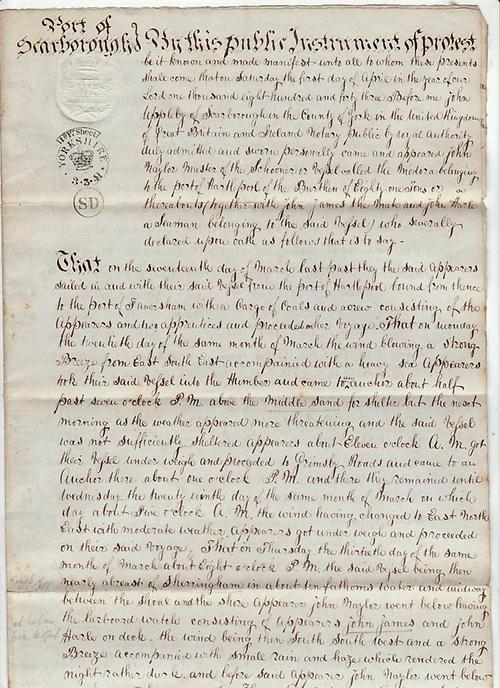 Port of
Scarborough} By this public Instrument of protest
be it known and made manifest unto all to whom these presents
shall come that on Saturday the first day of April in the year of our
Lord one thousand eight hundred and forty three Before me John
Appleby of Scarborough in the County of York in the United Kingdom
of Great Britain and Ireland Notary Public by royal Authority
duly admitted and sworn personally came and appeared John
Naylor Master of the Schooner or Vessel called the Medora belonging
to the port of Hartlepool of the Burthen of Eighty one tons or
thereabouts (together with John James the Mate and John Harle
a Seaman belonging to the said Vessel) who severally
declared upon oath as follows that is to say -
That on the seventeenth day of March last past they the said Appearers
sailed in and with their said Vessel from the port of Hartlepool bound from thence
to the port of Faversham with a Cargo of Coals and a crew consisting of the
Appearers and two apprentices and proceeded on her Voyage. That on monday
the twentieth day of the same month of March the wind blowing a strong
Breeze from East South East accompanied with a heavy sea Appearers
took their said Vessel into the Humber and came to anchor about half
past seven o'clock P.M. above the Middle Sand for shelter but the next
morning as the weather appeared more threatening and the said Vessel
was not sufficiently sheltered appearers about Eleven o'clock A.M. got
their Vessel under weigh and proceeded to Grimsby Roads and came to an
Anchor there about one o'clock P.M. and there they remained until
Wednesday the twenty ninth day of the same month of March on which
day about Five o'clock A.M. the wind having changed to East North
East with moderate weather, Appearers got under weigh and proceeded
on their said Voyage, That on Thursday the thirtieth day of the same
month of March about Eight o'clock P.M. the said Vessel being then
nearly abreast of Sherringham in about ten fathoms water and midway
between the shoal and the shore Appearer John Naylor went below leaving
the larboard watch consisting of Appearers John James and John
Harle on deck. the wind being then South South West and a strong
Breeze accompanied with small rain and haze which rendered the
night rather dark. and before said Appearer John Naylor went below
YORKSHIRE
3.3.41
SD